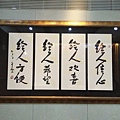 給人信心
給人歡喜
給人希望
給人方便